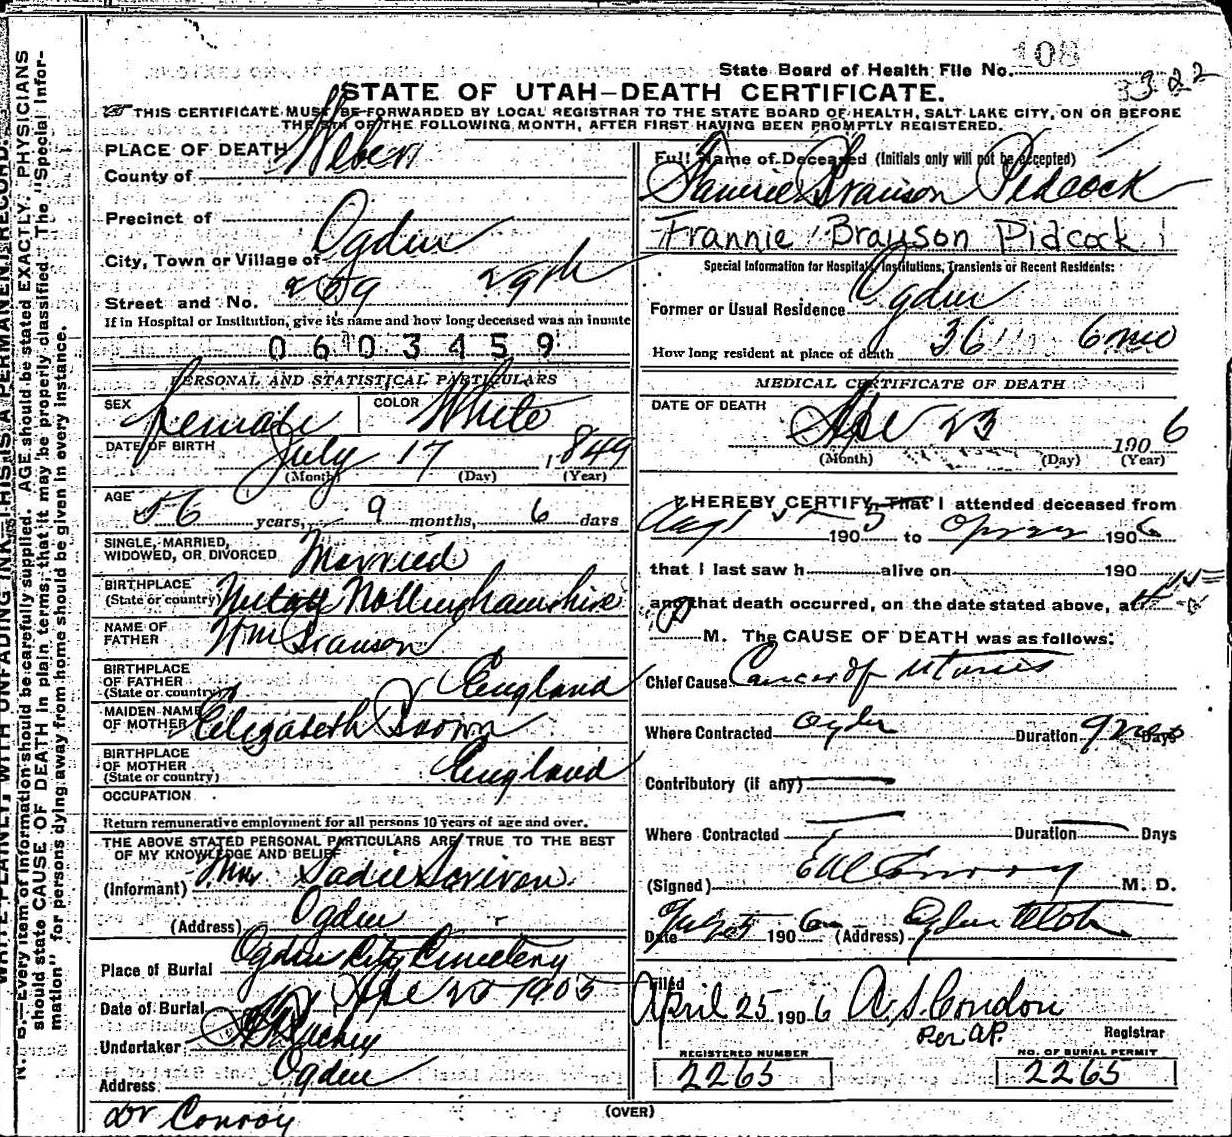 108
State Board of Health File No.
3322
STATE OF UTAH—DEATH CERTIFICATE.
THIS CERTIFICATE MUST BE FORWARDED BY LOCAL REGISTRAR TO THE STATE BOARD OF HEALTH, SALT LAKE CITY, ON OR BEFORE
THE 5TH OF THE FOLLOWING MONTH, AFTER FIRST HAVING BEEN PROMPTLY REGISTERED.
PLACE OF DEATH
County of Weber
Precinct of
City, Town or Village of Ogden
Street and No. 269 29th
If in Hospital or Institution, give its name and how long deceased was an inmate
0603459
PERSONAL AND STATISTICAL PARTICULARS
SEX female COLOR White
DATE OF BIRTH July 17 1849
(Month) (Day) (Year)
AGE 56 years, 9 months, 6 days
SINGLE, MARRIED, WIDOWED, OR DIVORCED Married
BIRTHPLACE (State or country) Nottinghamshire
NAME OF FATHER Wm Branson
BIRTHPLACE OF FATHER (State or country) England
MAIDEN NAME OF MOTHER Elizabeth
BIRTHPLACE OF MOTHER (State or country) England
OCCUPATION
Return remunerative employment for all persons 10 years of age and over.
THE ABOVE STATED PERSONAL PARTICULARS ARE TRUE TO THE BEST
OF MY KNOWLEDGE AND BELIEF
(Informant) Mrs Sadie
(Address) Ogden
Place of Burial Ogden City Cemetery
Date of Burial Apr 1905
Undertaker
Address Ogden
Dr Conroy
Full Name of Deceased (Initials only will not be accepted)
Fannie Branson Pidcock
Frannie Brayson Pidcock
Special Information for Hospitals, Institutions, Transients or Recent Residents:
Former or Usual Residence Ogden
How long resident at place of death 36 6 mo
MEDICAL CERTIFICATE OF DEATH
DATE OF DEATH
Apr 23 1906
(Month) (Day) (Year)
I HEREBY CERTIFY, That I attended deceased from
Aug 1905 to 1906
that I last saw h alive on 190
and that death occurred, on the date stated above, at
M. The CAUSE OF DEATH was as follows:
Chief Cause Cancer of uterus
Where Contracted Ogden Duration 9 mos Days
Contributory (if any)
Where Contracted Duration Days
(Signed) EW Conroy M. D.
Date 1906 (Address) Ogden Utah
Filed
April 25 1906 A.S. Condon
Per A.P. Registrar
REGISTERED NUMBER NO. OF BURIAL PERMIT
2265 2265
(OVER)
WRITE PLAINLY, WITH UNFADING INK—THIS IS A PERMANENT RECORD.
N. B.—Every item of information should be carefully supplied. AGE should be stated EXACTLY. PHYSICIANS
should state CAUSE OF DEATH in plain terms, that it may be properly classified. The "Special Infor-
mation" for persons dying away from home should be given in every instance.